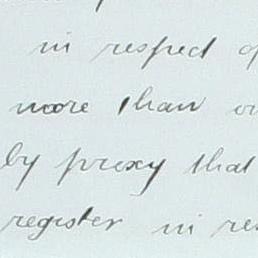 in respect of
more than
by proxy that
register in